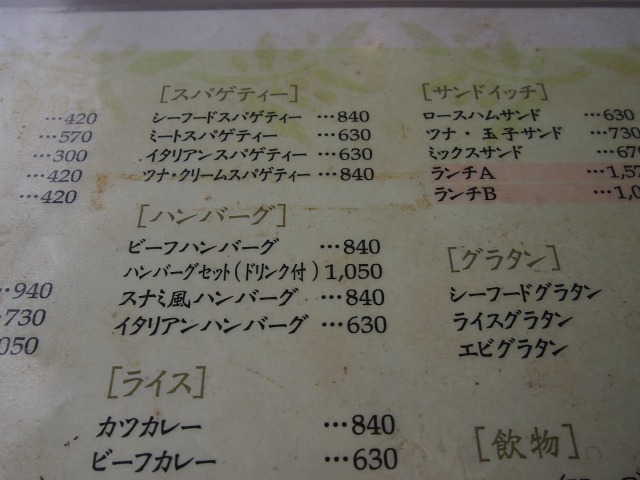 …420
…570
…300
…420
…420
…940
…730
050
[スパゲティー]
シーフードスパゲティー …840
ミートスパゲティー …630
イタリアンスパゲティー …630
ツナ・クリームスパゲティー …840
[ハンバーグ]
ビーフハンバーグ …840
ハンバーグセット(ドリンク付)1,050
スナミ風ハンバーグ …840
イタリアンハンバーグ …630
[ライス]
カツカレー …840
ビーフカレー …630
[サンドイッチ]
ロースハムサンド …630
ツナ・玉子サンド …730
ミックスサンド …670
ランチA …1,57
ランチB …1,0
[グラタン]
シーフードグラタン
ライスグラタン
エビグラタン
[飲物]